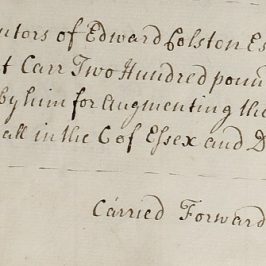 utors of Edward Colston Es
t Carr Two Hundred poun
by him for Augmenting the
all in the Co of Essex and D
Carried Forward